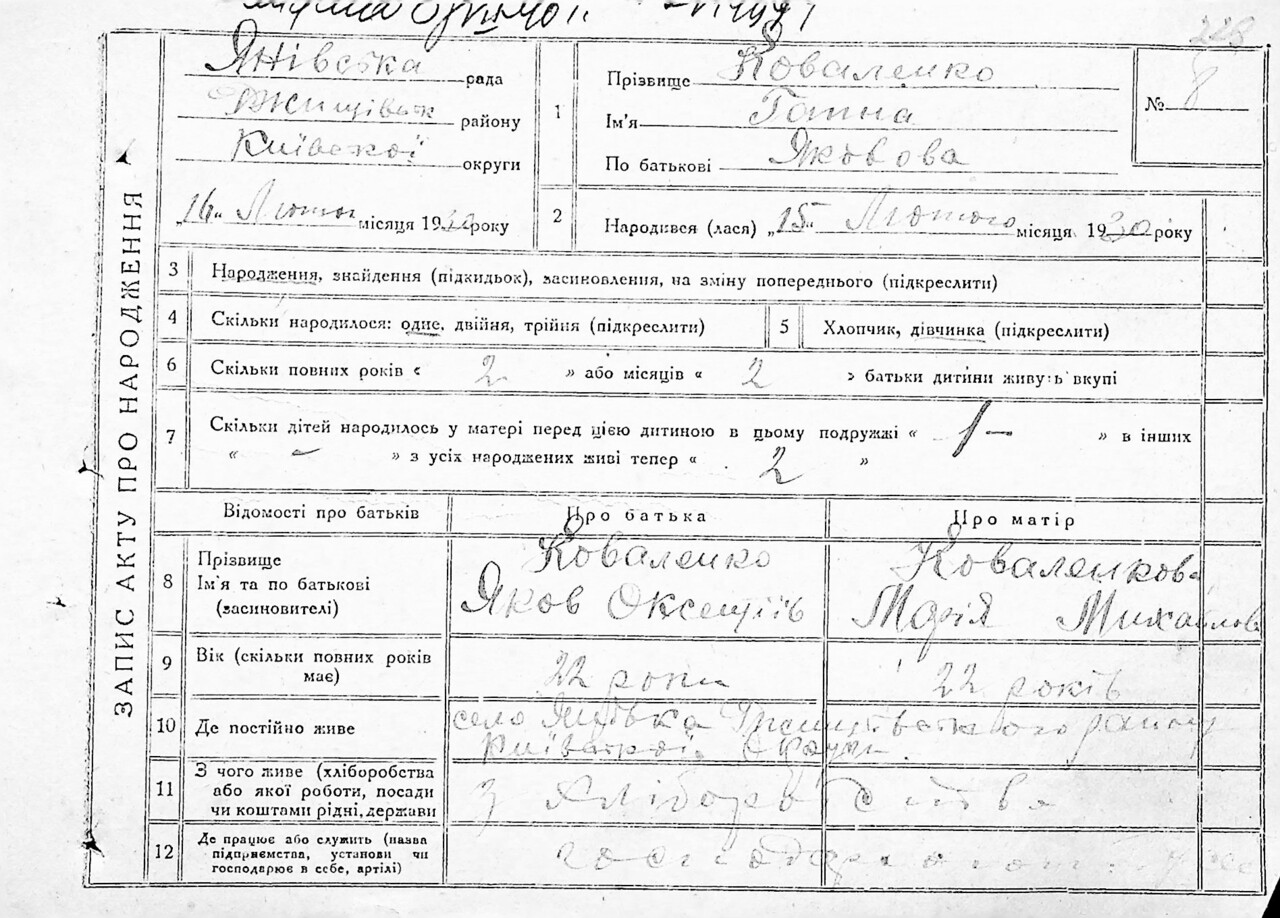 228
Янівська рада
Ржищівськ району
Київської округи
„16" Лютого місяця 1930 року
1
Прізвище Коваленко
Ім'я Ганна
По батькові Яковова
№ 8
2
Народився (лася) „15" Лютого місяця 1930 року
ЗАПИС АКТУ ПРО НАРОДЖЕННЯ
3 Народження, знайдення (підкидьок), засиновлення, на зміну попереднього (підкреслити)
4 Скільки народилося: одне, двійня, трійня (підкреслити)
5 Хлопчик, дівчинка (підкреслити)
6 Скільки повних років « 2 » або місяців « 2 » батьки дитини живуть вкупі
7 Скільки дітей народилось у матері перед цією дитиною в цьому подружжі « 1 – » в інших
« – » з усіх народжених живі тепер « 2 »
Відомості про батьків Про батька Про матір
8 Прізвище
Ім'я та по батькові
(засиновителі)
Коваленко
Яков
Коваленкова
Марія Михайлова
9 Вік (скільки повних років
має)
22 роки 22 років
10 Де постійно живе
село Янівка району
Київської Округи
11 З чого живе (хліборобства
або якої роботи, посади
чи коштами рідні, держави
З хліборобства
12 Де працює або служить (назва
підприємства, установи чи
господарює в себе, артілі)